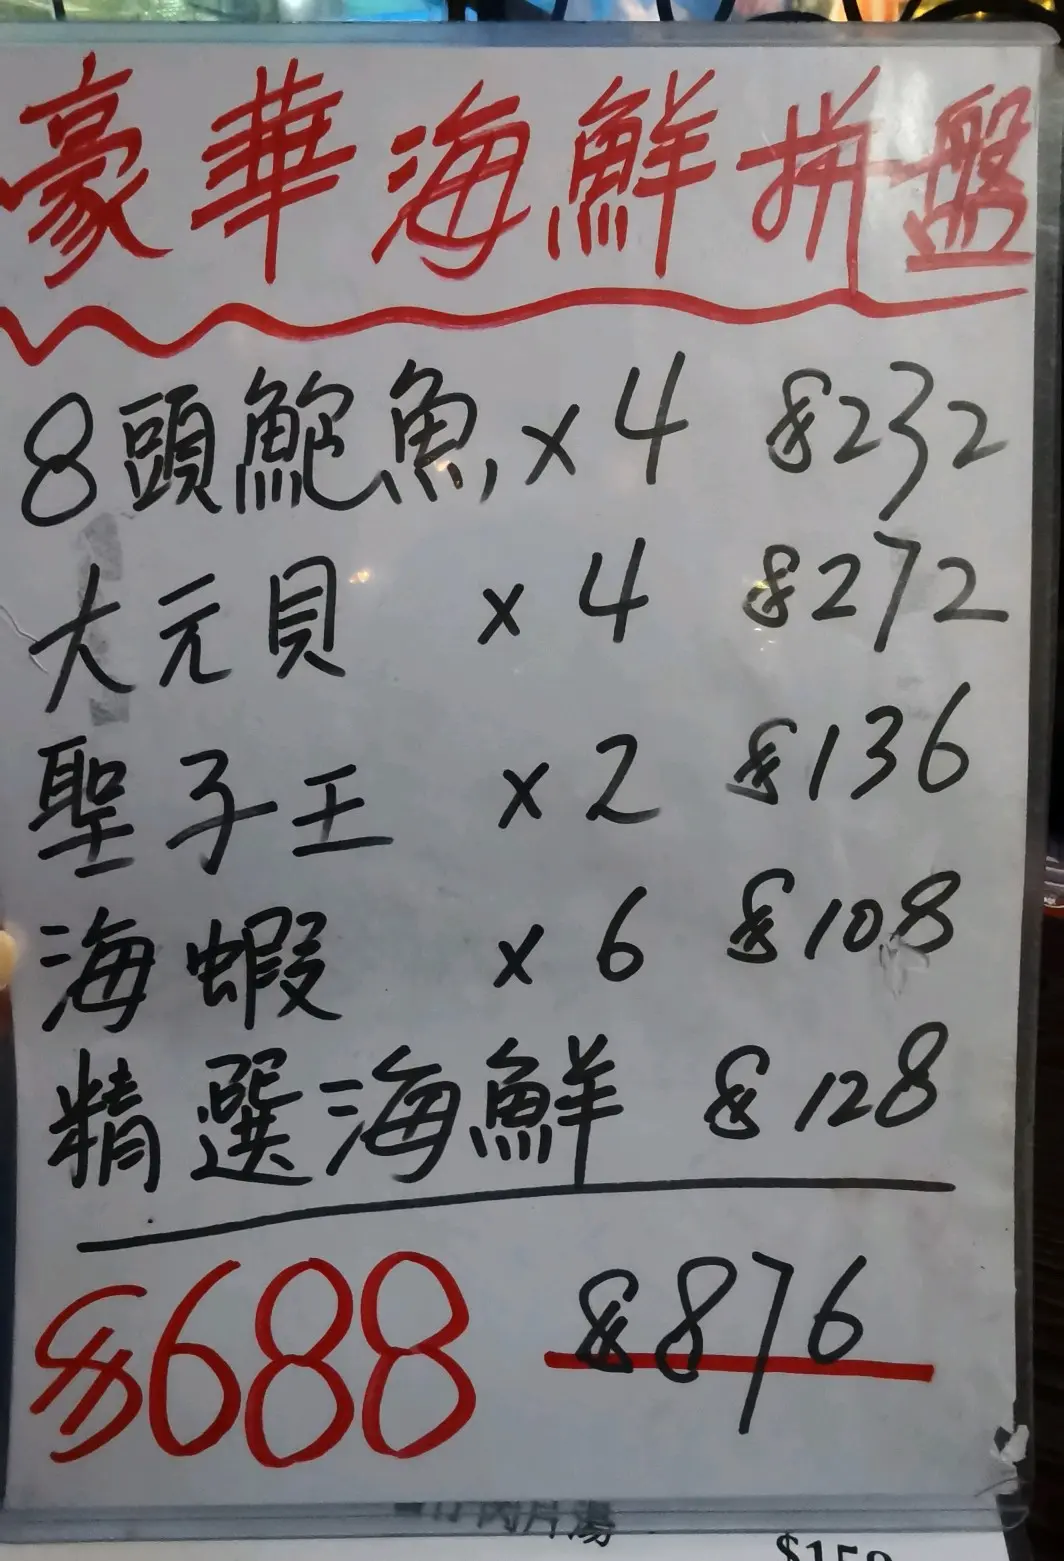 豪華海鮮拼盤
8頭鮑魚 x 4 $232
大元貝 x 4 $272
聖子王 x 2 $136
海蝦 x 6 $108
精選海鮮 $128
$688 $876
肉片湯